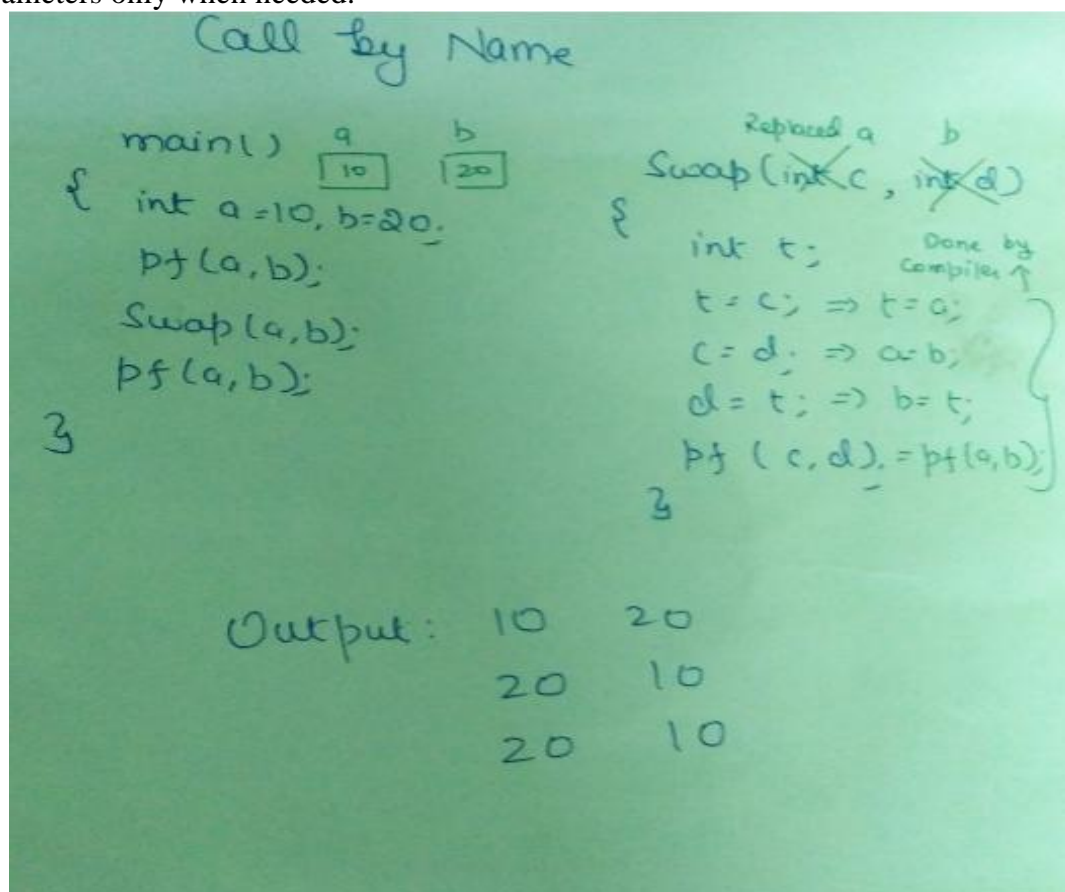 ameters only when needed.
Call by Name
main()
a b
10 20
{ int a=10, b=20;
pf(a,b);
Swap(a,b);
pf(a,b);
}
Replaced a b
Swap(int c, int d)
{
int t;
Done by
Compiler ↑
t = c; => t=a;
c = d; => a=b;
d = t; => b=t;
pf (c,d); = pf(a,b);
}
Output: 10 20
20 10
20 10